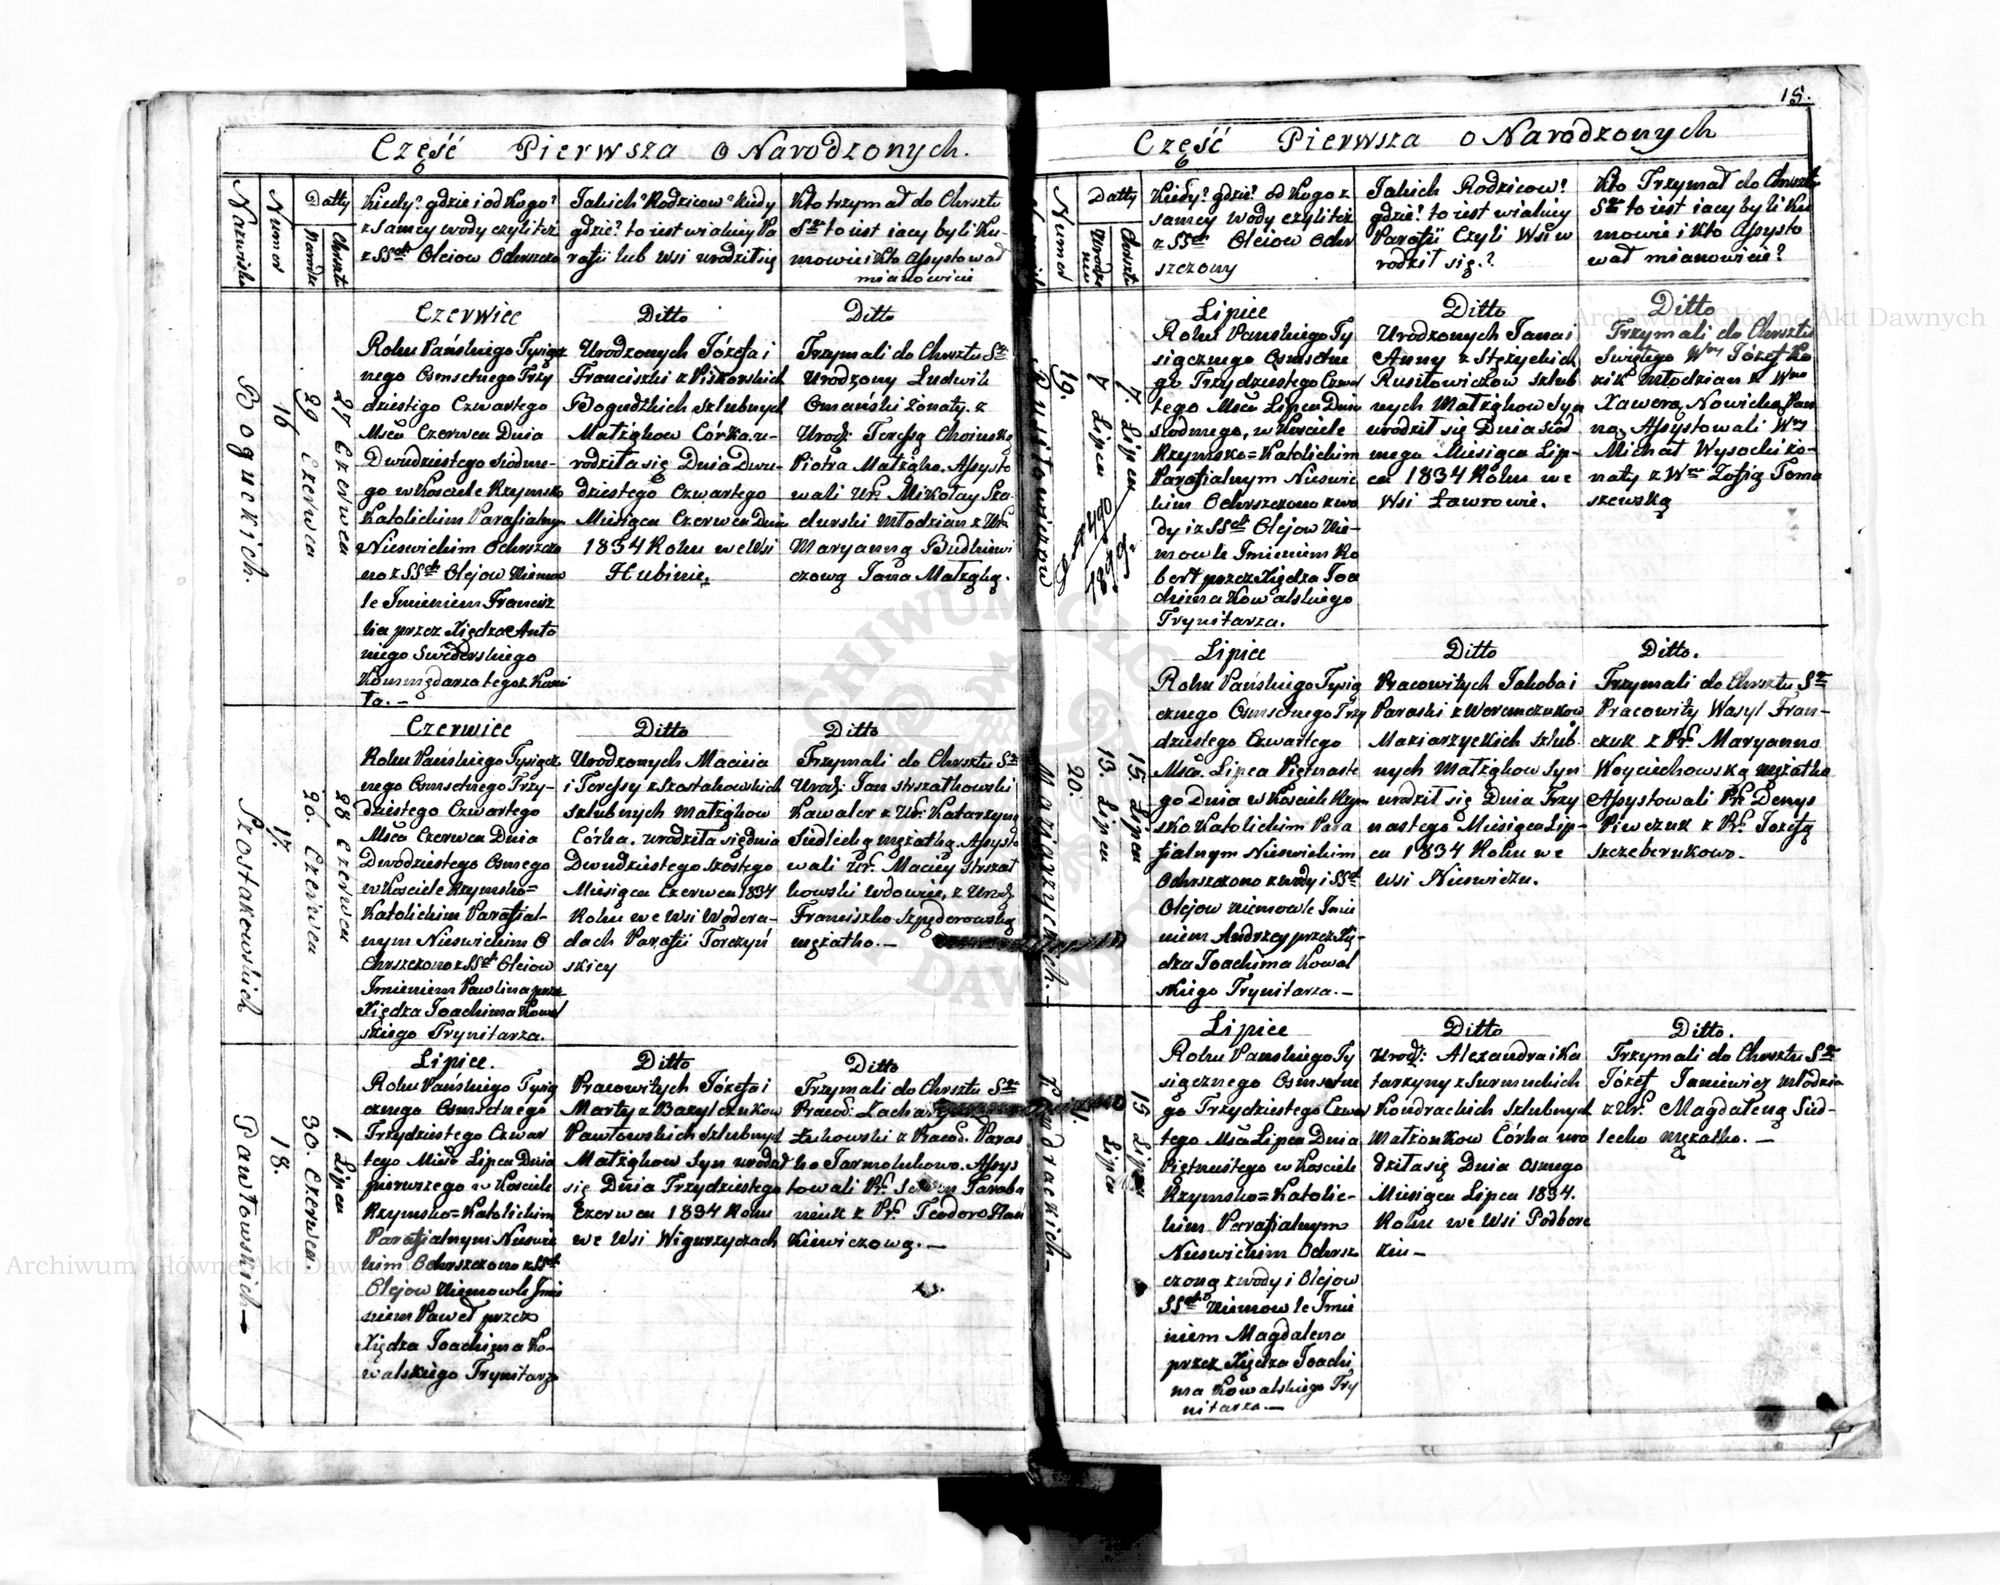 15.
Część Pierwsza o Narodzonych.
Nazwisko
Numer
Datty
Chrztu
Kiedy? gdzie i od kogo?
z samey wody czyli też
z SSch Oleiow Ochrszczo
Jakich Rodzicow? kiedy
gdzie? to iest w ialiey Pa
rafii lub wsi urodził się
Kto trzymał do Chrsztu
Sgo to iest iacy byli Ku-
mowie i kto Assystował
mianowicie
Boguckich.
16
29 Czerwca
27 Czerwca
Czerwiec
Roku Pańskiego Tysiącz
nego Osmsetnego Trzy
dziestego Czwartego
Msca Czerwca Dnia
Dwudziestego siodme-
go w Kosciele Rzymsko
Katolickim Parafialnym
Nieswickim Ochrszczo
no z SSch Olejow Niemow
le Imieniem Francisz
ka przez Xiędza Anto
niego Swiderskiego
Kommędarza tegoż Kosci
ła.—
Ditto
Urodzonych Józefa i
Franciszki z Piskorskich
Boguckich szlubnych
Małżąkow Córka. u-
rodziła się Dnia Dwu-
dziestego Czwartego
Miesiąca Czerwca Dnia
1834 Roku we Wsi
Hubinie,
Ditto
Trzymali do Chrsztu Sgo
Urodzony Ludwik
Omański żonaty. z
Urodz: Teressą Choinską
Piotra Małżąką. Assysto
wali Ur. Mikołay Sza-
durski Młodzian z Ur.
Maryanną Budkiewi
czową Jana Małżąką.
Szostakowskich
17.
26. Czerwca
28 Czerwca
Czerwiec
Roku Pańskiego Tysiącz
nego Osmsetnego Trzy-
dziestego Czwartego
Msca Czerwca Dnia
Dwódziestego Osmego
w Kosciele Rzymsko=
Katolickim Parafial-
nym Nieswickim O
chrszczono z SSch Oleiow
Imieniem Pawlina przez
Xiędza Joachima Kowal
skiego Trynitarza.
Ditto
Urodzonych Macieia
i Teressy z Szostakowskich
szlubnych Małżąkow
Córka. urodziła się dnia
Dwudziestego szostego
Miesiąca Czerwca 1834
Roku we Wsi Wodera-
dach Parafii Torczyń
skiey
Ditto
Trzymali do Chrsztu Sgo
Urodz: Jan Strszałkowski
Kawaler z Ur. Katarzyną
Siedlecką mężatką. Assysto
wali Ur. Maciey Strszał
kowski wdowiec, z Urodz
Franciszką Szpęderowską
mężatką.—
Pawłowskich—
18.
30. Czerwca.
1. Lipca
Lipiec.
Roku Pańskiego Tysią
cznego Osmsetnego
Trzydziestego Czwar
tego Msca Lipca Dnia
pierwszego w Kosciele
Rzymsko=Katolickim
Parafialnym Nieswic
kim Ochrszczono z SSch
Olejow Niemowle Imie
niem Paweł przez
Xiędza Joachima Ko-
walskiego Trynitarza
Ditto
Pracowitych Józefa i
Marty z Bazylczukow
Pawłowskich szlubnych
Małżąkow syn urodził
się Dnia Trzydziestego
Czerwca 1834 Roku
we Wsi Wigurzyczach
Ditto
Trzymali do Chrsztu Sgo
Pracod: Zachar
Łukowski z Pracod. Paras
ką Jarmolukową. Assys
towali Pr. Taraba
niuk z Pr. Teodorą Stan
kiewiczową.—
Część Pierwsza o Narodzonych
Numer
Datty
Urodze
nia
Chrztu
Kiedy? gdzie? od kogo z
samey wody czyli też
z SSch Oleiow Ochr
szczony
Jakich Rodzicow?
gdzie? to iest w ialiey
Parafii Czyli Wsi u
rodził się.?
Kto Trzymał do Chrsztu
Sgo to iest iacy byli Ku
mowie i kto Assysto
wał mianowicie?
Rusiłowiczow
19.
7 Lipca
7. Lipca
Lipiec
Roku Pańskiego Ty
siącznego Osmsetne
go Trzydziestego Czwar
tego Msca Lipca Dnia
siodmego, w Kosciele
Rzymsko=Katolickim
Parafialnym Nieswic
kim Ochrszczono z wo
dy i z SSch Olejow Nie-
mowle Imieniem Ro
bert przez Xiędza Joa
chima Kowalskiego
Trynitarza.
Ditto
Urodzonych Jana i
Anny z Stężyckich
Rusiłowiczow szlub
nych Małżąkow syn
urodził się Dnia siod
mego Miesiąca Lip-
ca 1834 Roku we
Wsi Ławrowie.
Ditto
Trzymali do Chrsztu
Swiętego Wny Józef Ko
zik Młodzian z Wną
Xawerą Nowicką Pan
ną, Assystowali Wny
Michał Wysocki żo-
naty z Wną Zofią Toma
szewską
Maziarzyckich.—
20.
13. Lipca
15. Lipca
Lipiec
Roku Pańskiego Tysią
cznego Osmsetnego Trzy
dziestego Czwartego
Msca. Lipca Piętnaste
go Dnia w Kosciele Rzym
sko Katolickim Para
fialnym Nieswickim
Ochrszczono z wody i SSch
Olejow Niemowle Imie
niem Andrzey przez Xię-
dza Joachima Kowal
skiego Trynitarza.—
Ditto
Pracowitych Jakoba i
Paraski z Weremczukow
Maziarzyckich szlub
nych Małżąkow syn
urodził się Dnia Trzy
nastego Miesiąca Lip-
ca 1834 Roku we
Wsi Nieswiczu.
Ditto.
Trzymali do Chrsztu Sgo
Pracowity Wasyl Fran-
czuk z Pr. Maryanną
Woyciechowską mężatką
Assystowali Pr. Denys
Piewczuk z Pr. Jozefą
Szczeberukową.
Kondrackich—
15 Lipca
Lipiec
Roku Pańskiego Ty
siącznego Osmsetne
go Trzydziestego Czwar
tego Msca Lipca Dnia
Piętnastego w Kosciele
Rzymsko=Katolic-
kim Parafialnym
Nieswickim Ochrsz
czoną z wody i Olejow
SSch Niemowle Imie
niem Magdalena
przez Xiędza Joachi
ma Kowalskiego Try
nitarza.—
Ditto
Urodz: Alexandra i Ka
tarzyny z Surmickich
Kondrackich szlubnych
Małżonkow Córka uro
dziła się Dnia osmego
Miesiąca Lipca 1834.
Roku we Wsi Podbore
ziu—
Ditto.
Trzymali do Chrsztu Sgo
Józef Janiewicz młodzian
z Ur. Magdaleną Sied-
lecką mężatką.—
Archiwum Główne Akt Dawnych